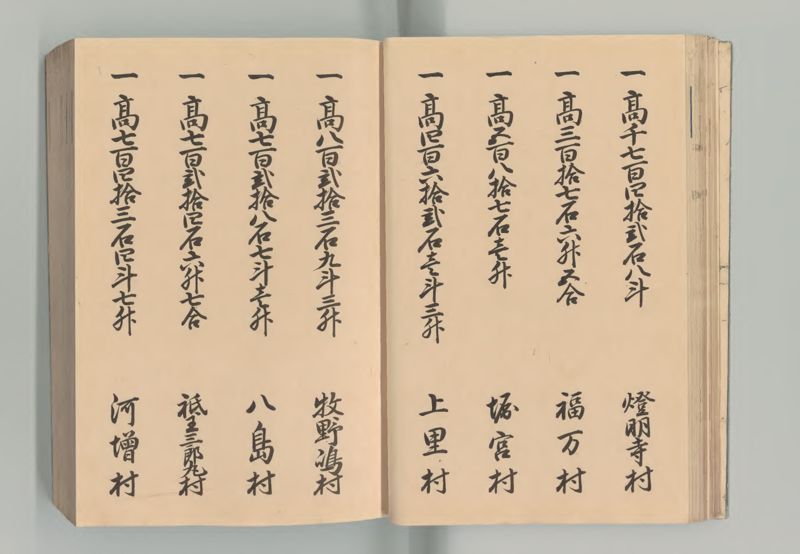 一高千七百四拾弐石八斗 燈明寺村
一高三百拾七石六升五合 福万村
一高五百八拾七石壱升 堀宮村
一高四百六拾弐石壱斗三升 上里村
一高八百弐拾三石九斗三升 牧野嶋村
一高七百弐拾八石七斗壱升 八島村
一高七百弐拾四石六升七合 祗王三郎丸村
一高七百四拾三石四斗七升 河増村